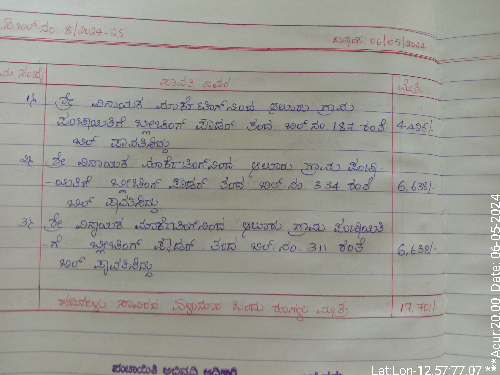 ಬಿಲ್.ನಂ. 8/2024-25
ದಿನಾಂಕ 06/05/2024
ಪಾವತಿ ವಿವರ ಮೊತ್ತ
1) ಶ್ರೀ ವಿನಾಯಕ ಮಾರ್ಕೆಟಿಂಗ್‌ನಿಂದ ಗ್ರಾಮ
ಪಂಚಾಯಿತಿಗೆ ಬ್ಲೀಚಿಂಗ್ ಪೌಡರ್ ತಂದ ಬಿಲ್ ನಂ 187 ಕಂತೆ 4,425/-
ಬಿಲ್ ಪಾವತಿಸಿದ್ದು
2) ಶ್ರೀ ವಿನಾಯಕ ಮಾರ್ಕೆಟಿಂಗ್‌ನಿಂದ ಗ್ರಾಮ ಪಂಚಾ
-ಯಿತಿಗೆ ಬ್ಲೀಚಿಂಗ್ ಪೌಡರ್ ತಂದ ಬಿಲ್ ನಂ 334 ಕಂತೆ 6,638/-
ಬಿಲ್ ಪಾವತಿಸಿದ್ದು
3) ಶ್ರೀ ವಿನಾಯಕ ಮಾರ್ಕೆಟಿಂಗ್‌ನಿಂದ ಗ್ರಾಮ ಪಂಚಾಯಿತಿ
ಗೆ ಬ್ಲೀಚಿಂಗ್ ಪೌಡರ್ ತಂದ ಬಿಲ್ ನಂ. 311 ಕಂತೆ 6,638/-
ಬಿಲ್ ಪಾವತಿಸಿದ್ದು
ಸಾವಿರದ ಏಳುನೂರ ಒಂದು ರೂಗಳು ಮಾತ್ರ 17,701/-
ಪಂಚಾಯಿತಿ ಅಭಿವೃದ್ಧಿ ಅಧಿಕಾರಿ
LatLon-12.57:77.07 ***Acur:20.00 Date: 06-05-2024